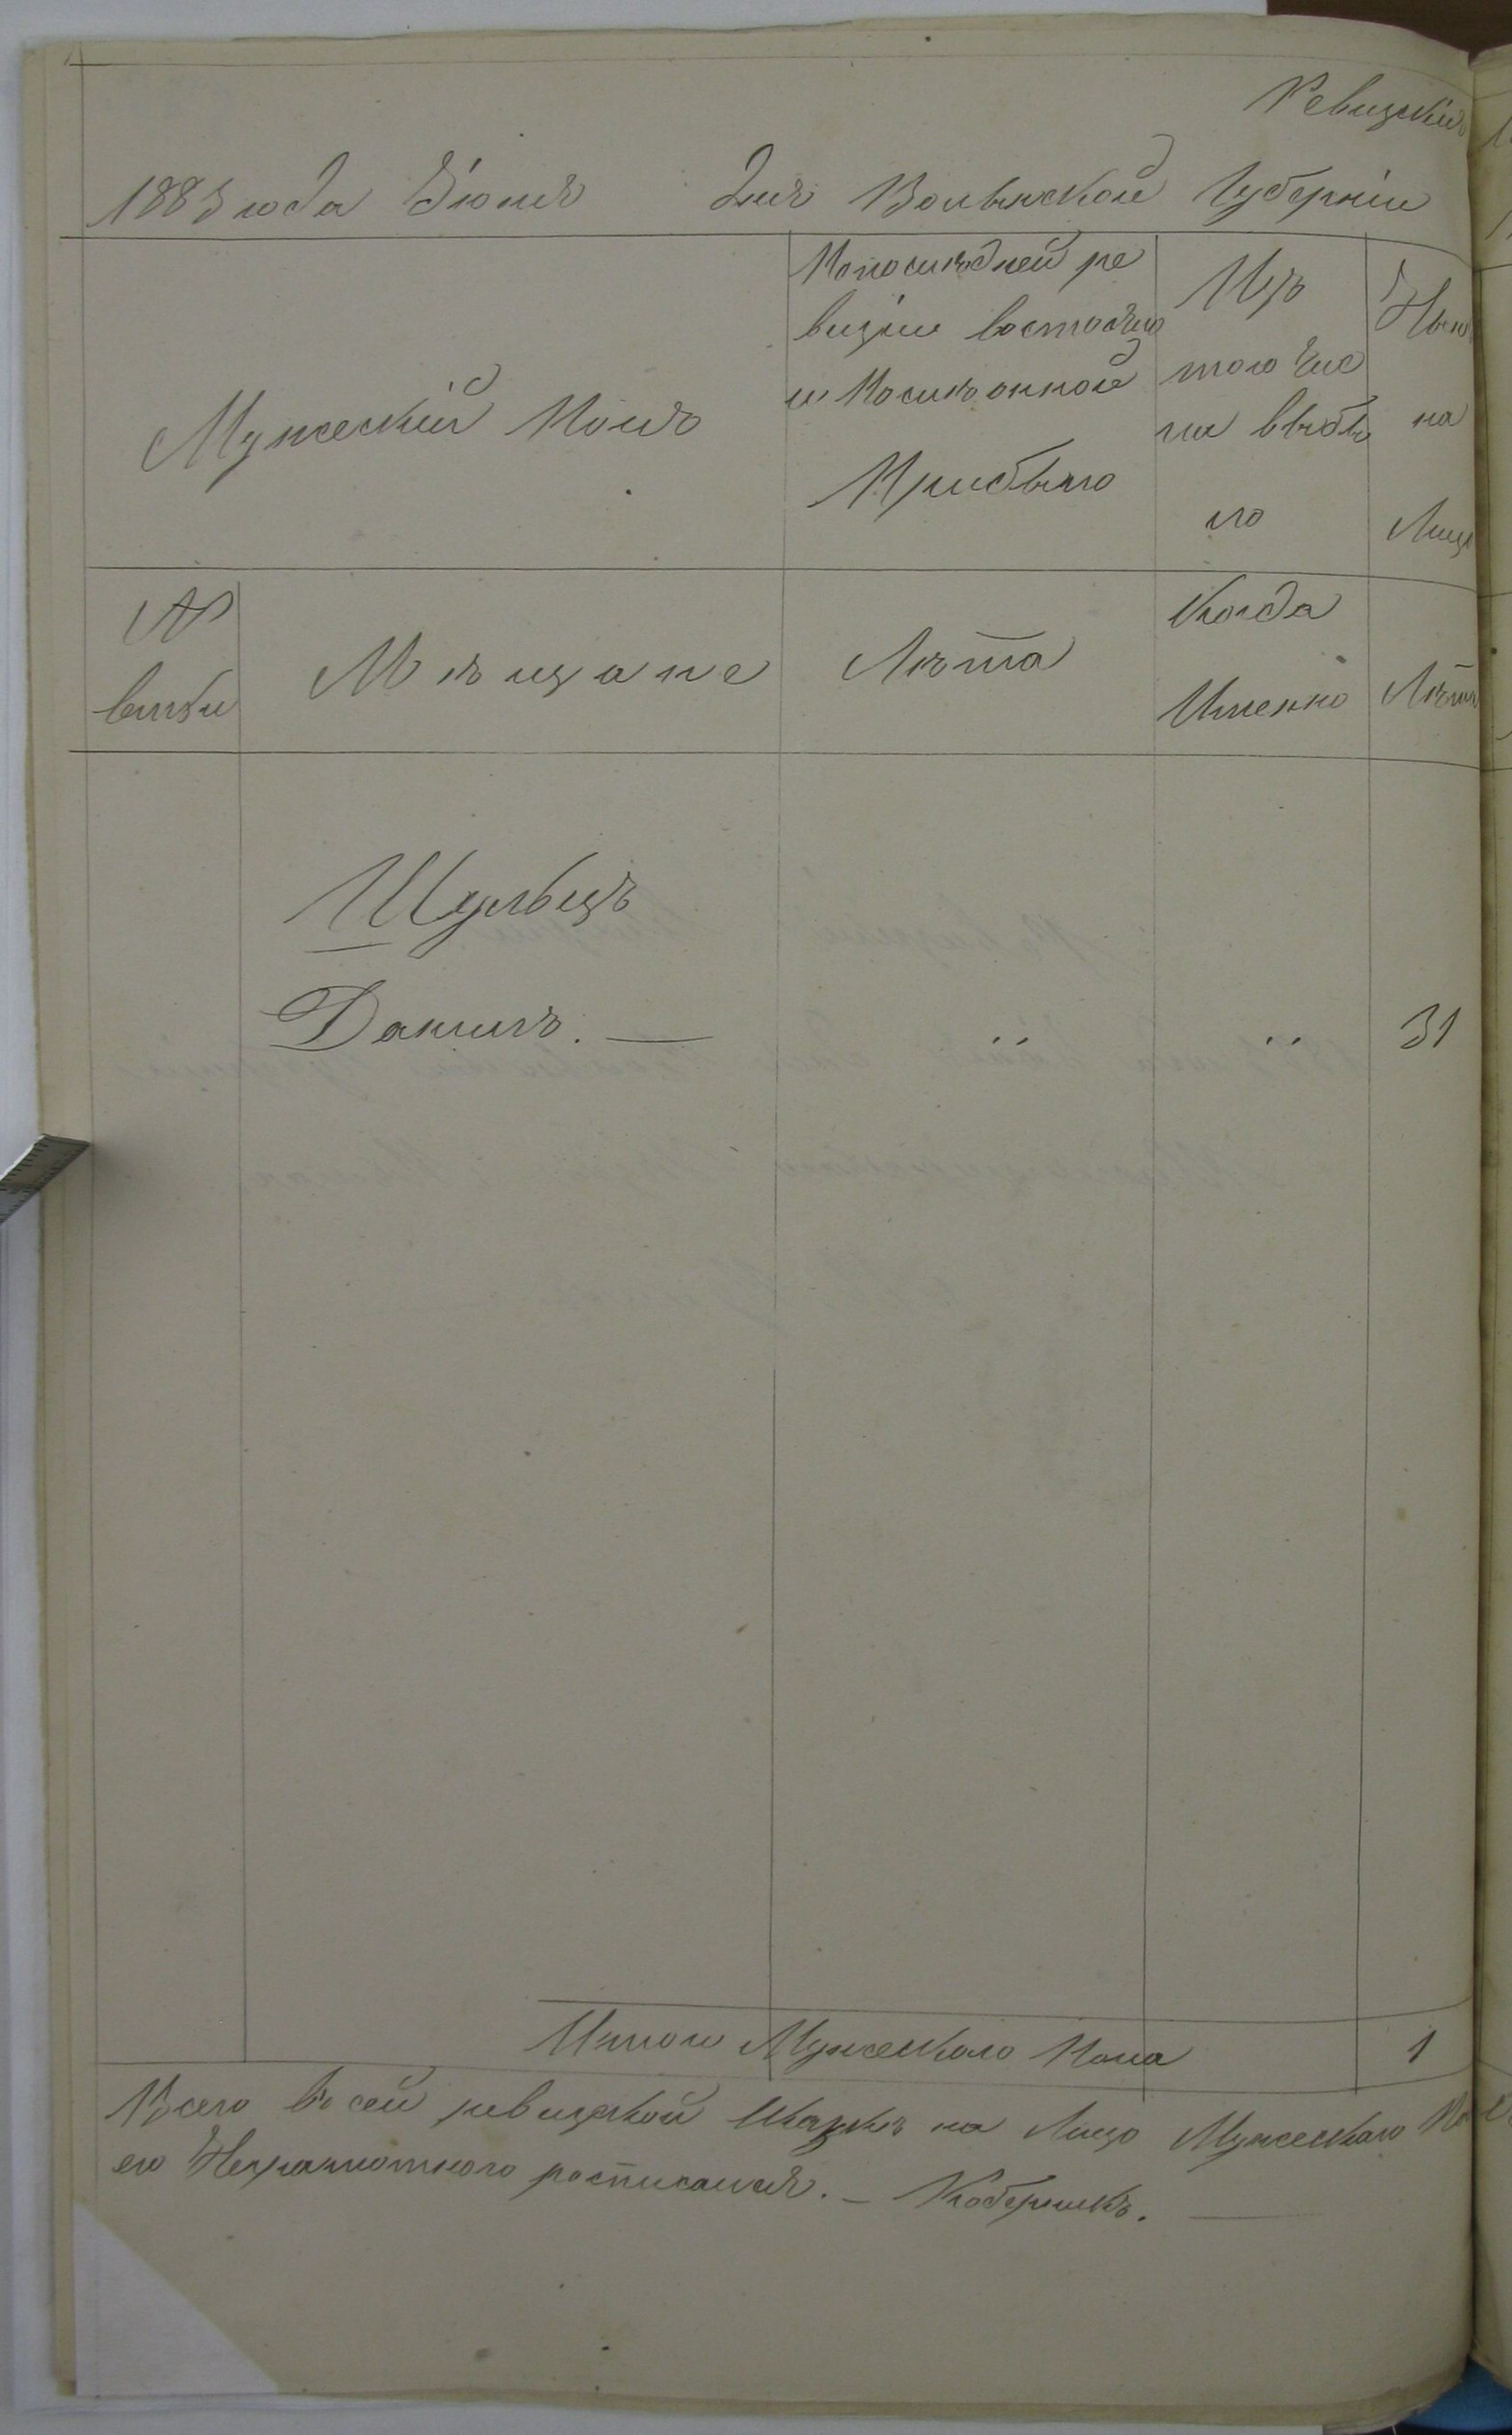 Ревизскія
1883 года Іюня дня Волынской Губерніи
Мужескій Полъ
По послѣдней ре
визіи состояло
и Послѣ онной
Прибыло
Изъ
того чис
ла выбы
ло
Нын
на
Лиц
№
семьи
Мѣщане
Лѣта
Когда
Именно
Лѣта
Шульцъ
Данилъ. —
31
Итого Мужескаго Пола 1
Всего въ сей ревизской Сказкѣ на Лицо Мужескаго По
его Неграмотного росписался. — Коберникъ. —